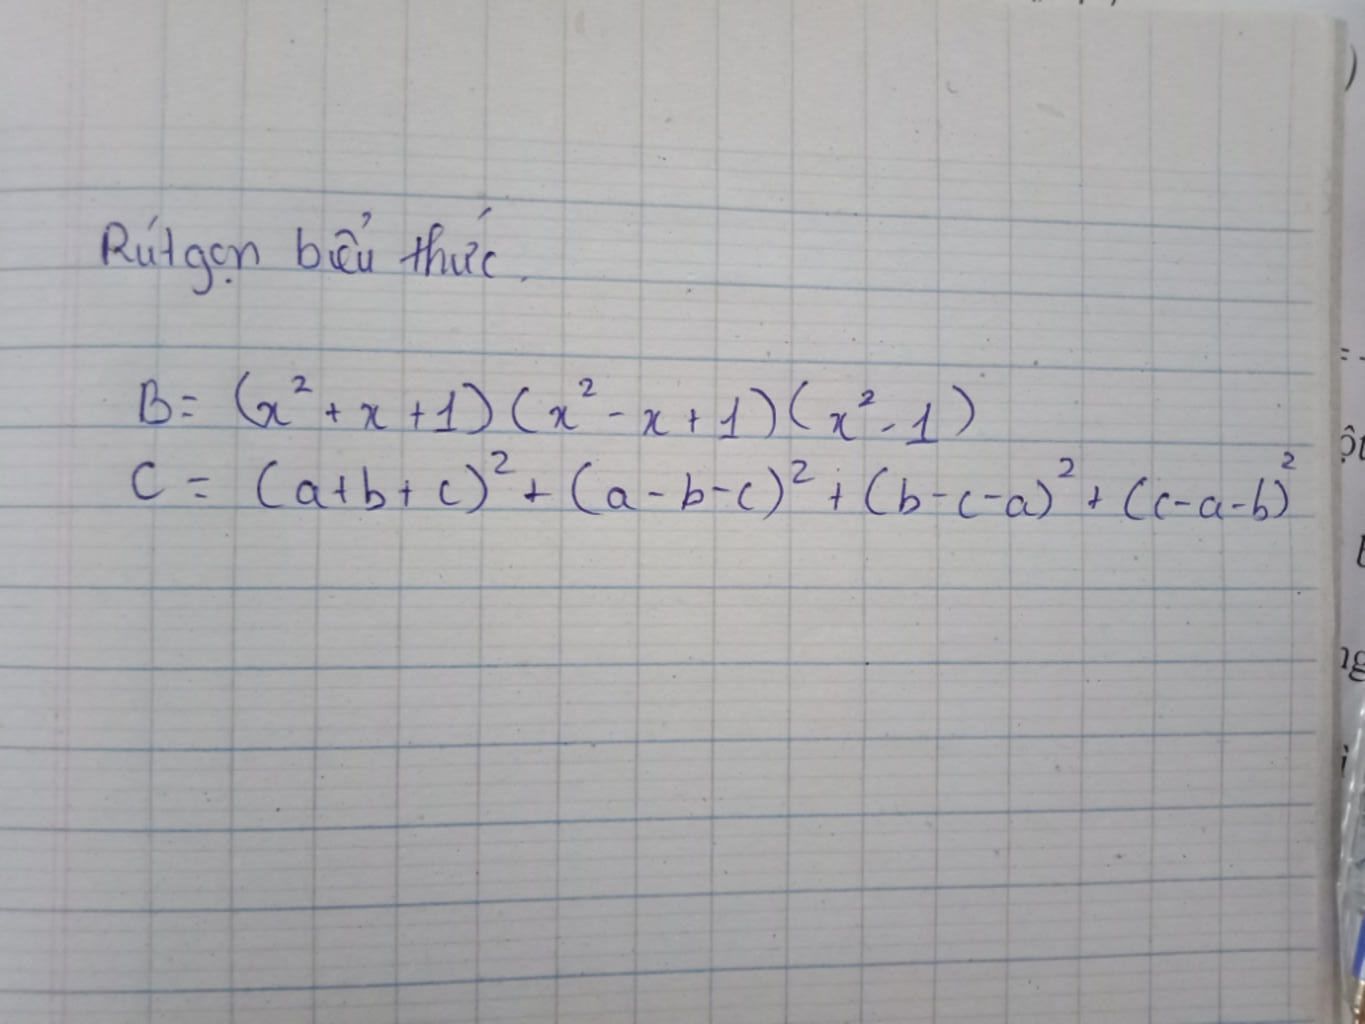 Rút gọn biểu thức.
B = (x² + x + 1)(x² - x + 1)(x² - 1)
C = (a + b + c)² + (a - b - c)² + (b - c - a)² + (c - a - b)²